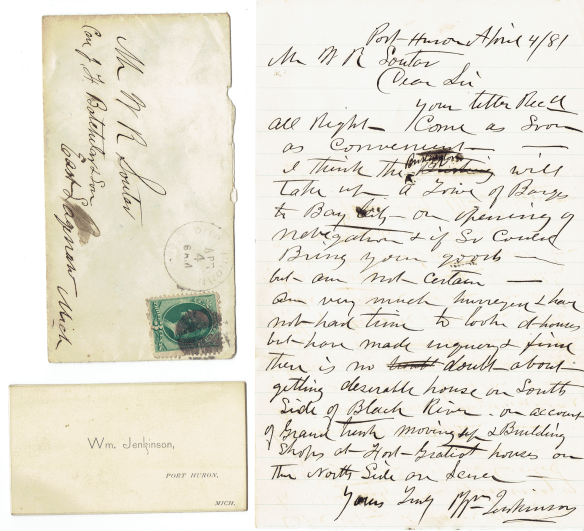 Mr W R Soutar
Care J. H Batchelor & Son
East Saginaw Mich
APR
4
Wm. Jenkinson,
PORT HURON,
MICH.
Port Huron April 4/81
Mr W R Soutar
Dear Sir
your letter Rec'd
all Right – Come as Soon
as Convenient –
I think the will
take up a Tow of Barges
to Bay City – on opening of
navigation & if So Could
Bring your goods –
but am not certain –
am very much hurried & have
not had time to look at houses
but have made inquiry & find
there is no doubt about
getting desirable house on South
Side of Black River on account
of Grand trunk moving up & Building
Shops at Fort Gratiot houses on
the North Side are
Yours Truly Wm Jenkinson